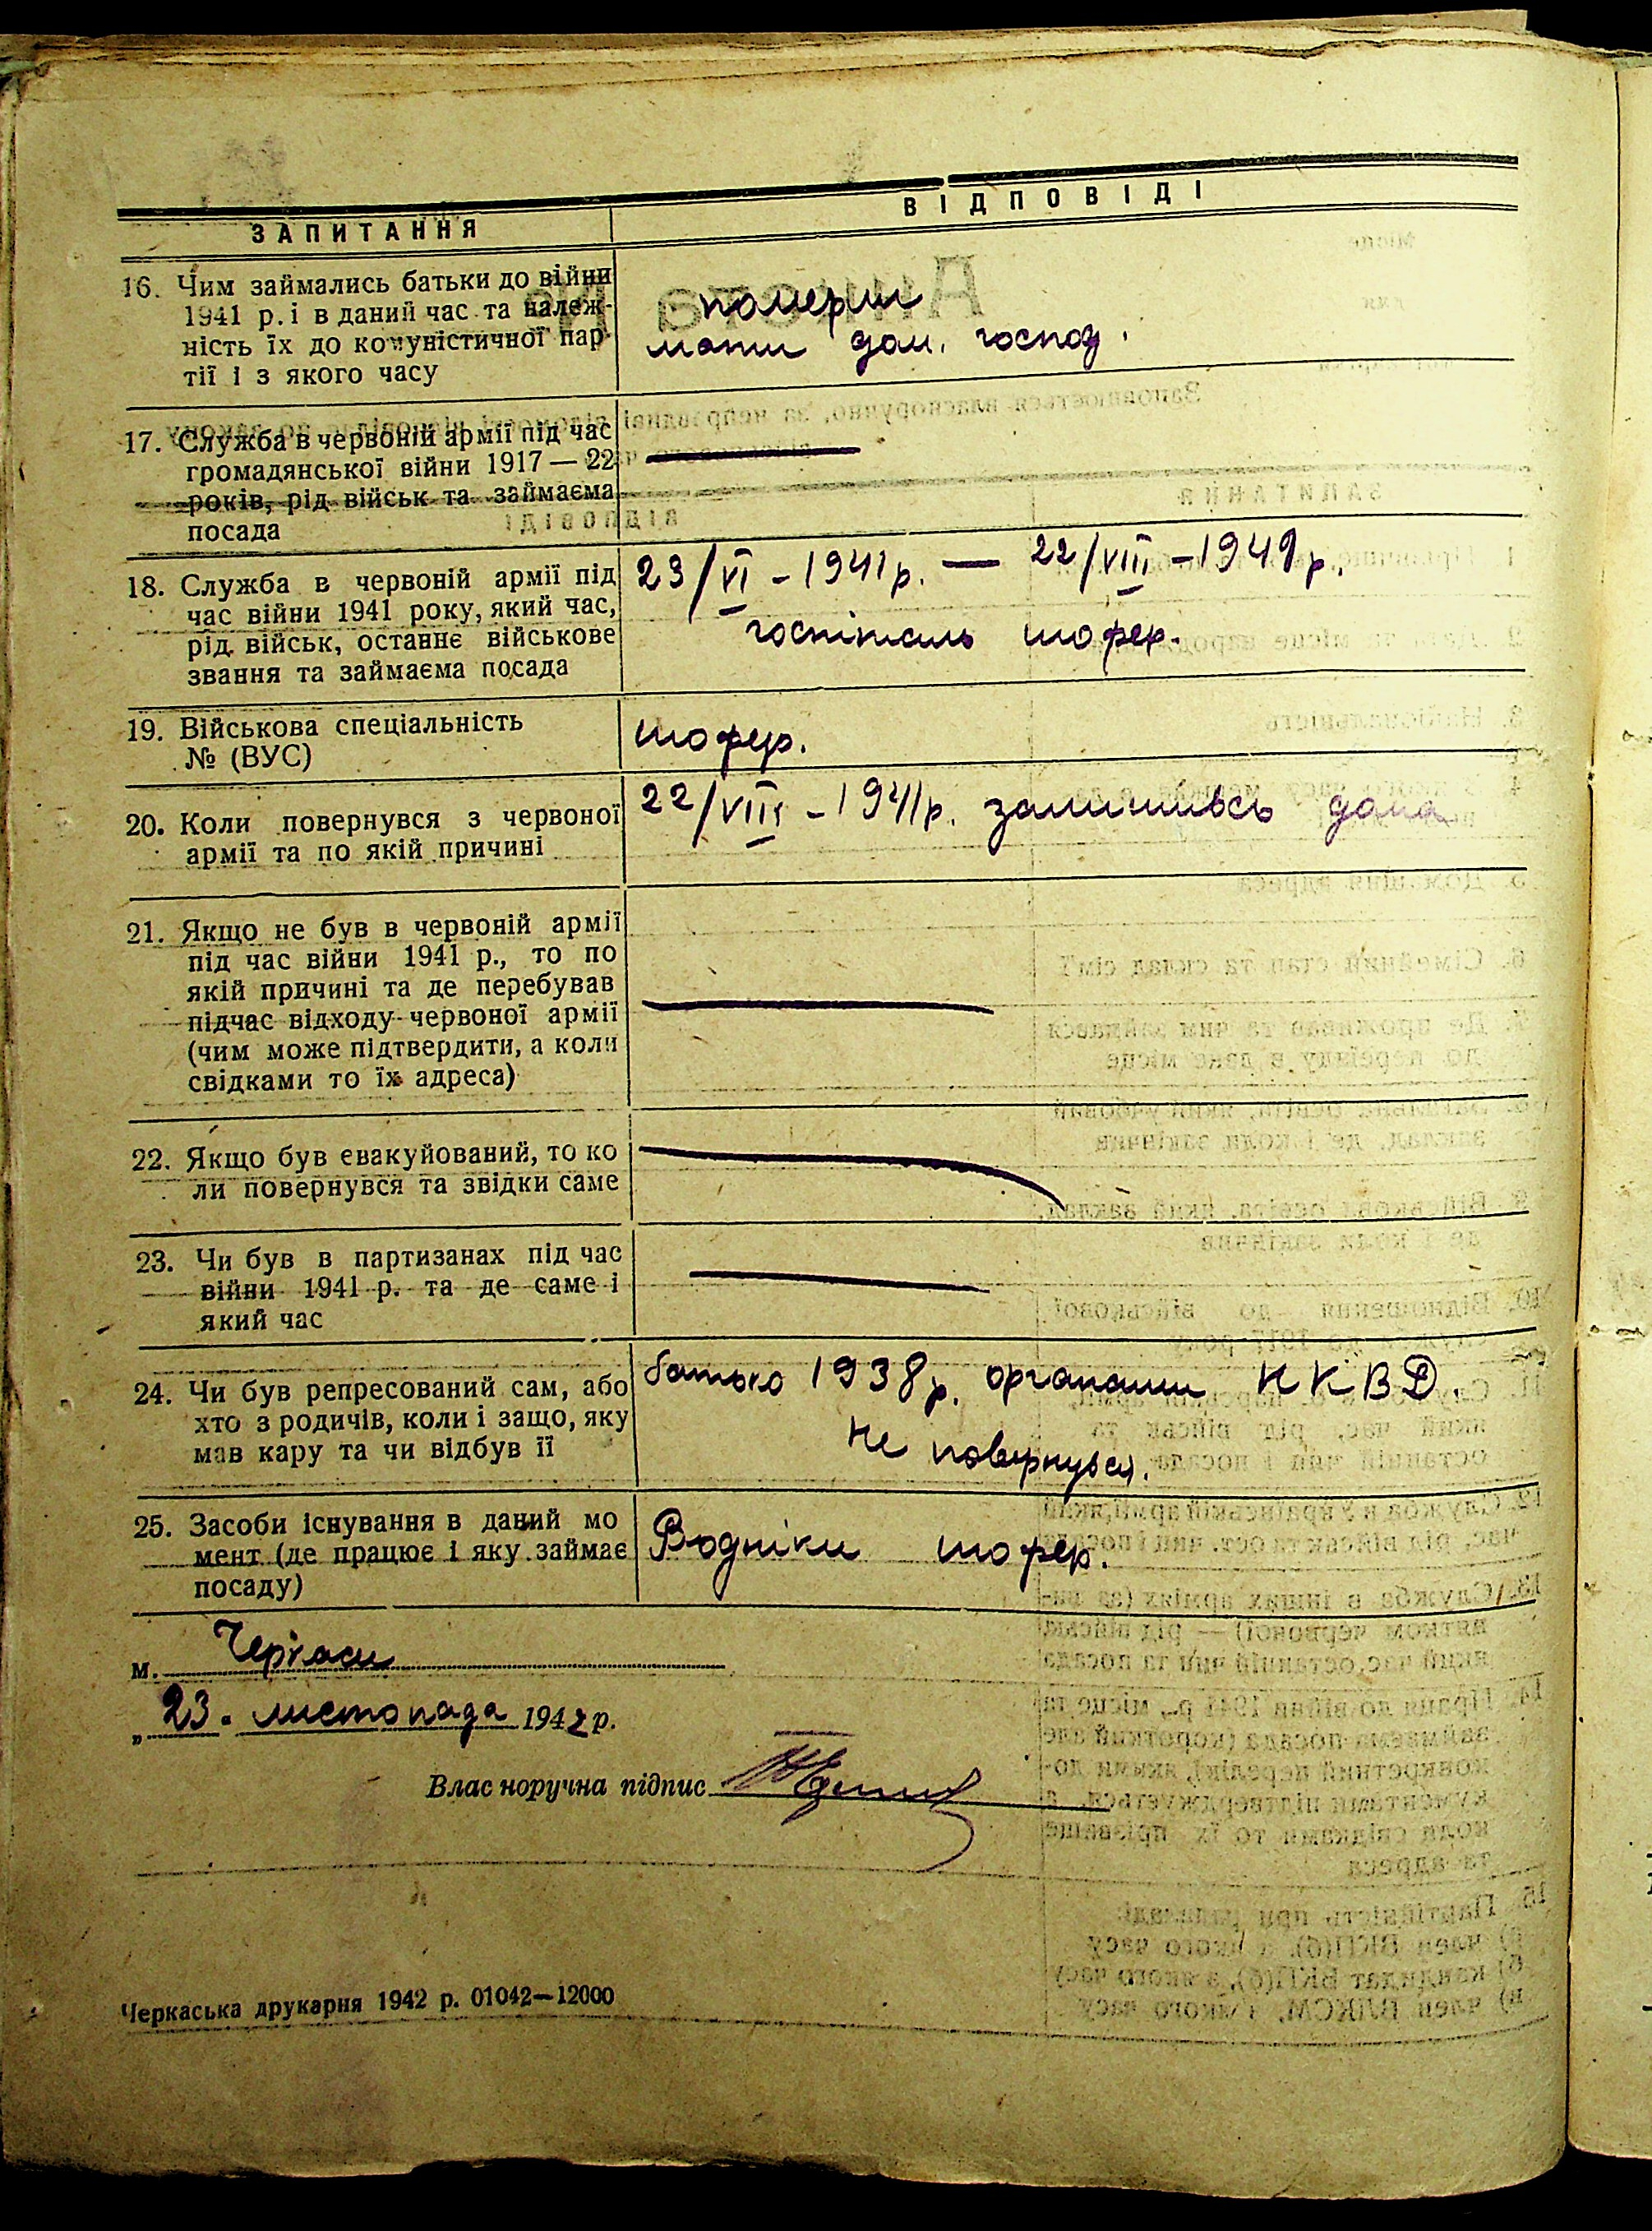 ЗАПИТАННЯ
ВІДПОВІДІ
16. Чим займались батьки до війни
1941 р. і в даний час та належ-
ність їх до комуністичної пар-
тії і з якого часу
померли
мати дом. господ.
17. Служба в червоній армії під час
громадянської війни 1917 — 22
років, рід військ та займаєма
посада
18. Служба в червоній армії під
час війни 1941 року, який час,
рід військ, останнє військове
звання та займаєма посада
23/VI - 1941р. — 22/VIII - 1941р.
госпіталь шофер.
19. Військова спеціальність
№ (ВУС)
шофер.
20. Коли повернувся з червоної
армії та по якій причині
22/VIII - 1941р. залишивсь дома
21. Якщо не був в червоній армії
під час війни 1941 р., то по
якій причині та де перебував
підчас відходу червоної армії
(чим може підтвердити, а коли
свідками то їх адреса)
22. Якщо був евакуйований, то ко
ли повернувся та звідки саме
23. Чи був в партизанах під час
війни 1941 р. та де саме і
який час
24. Чи був репресований сам, або
хто з родичів, коли і защо, яку
мав кару та чи відбув її
батько 1938р. органами НКВД.
не повернувся.
25. Засоби існування в даний мо
мент (де працює і яку займає
посаду)
Водніки шофер.
м. Черкаси
„ 23 " листопада 1942 р.
Власноручна підпис
Черкаська друкарня 1942 р. 01042—12000